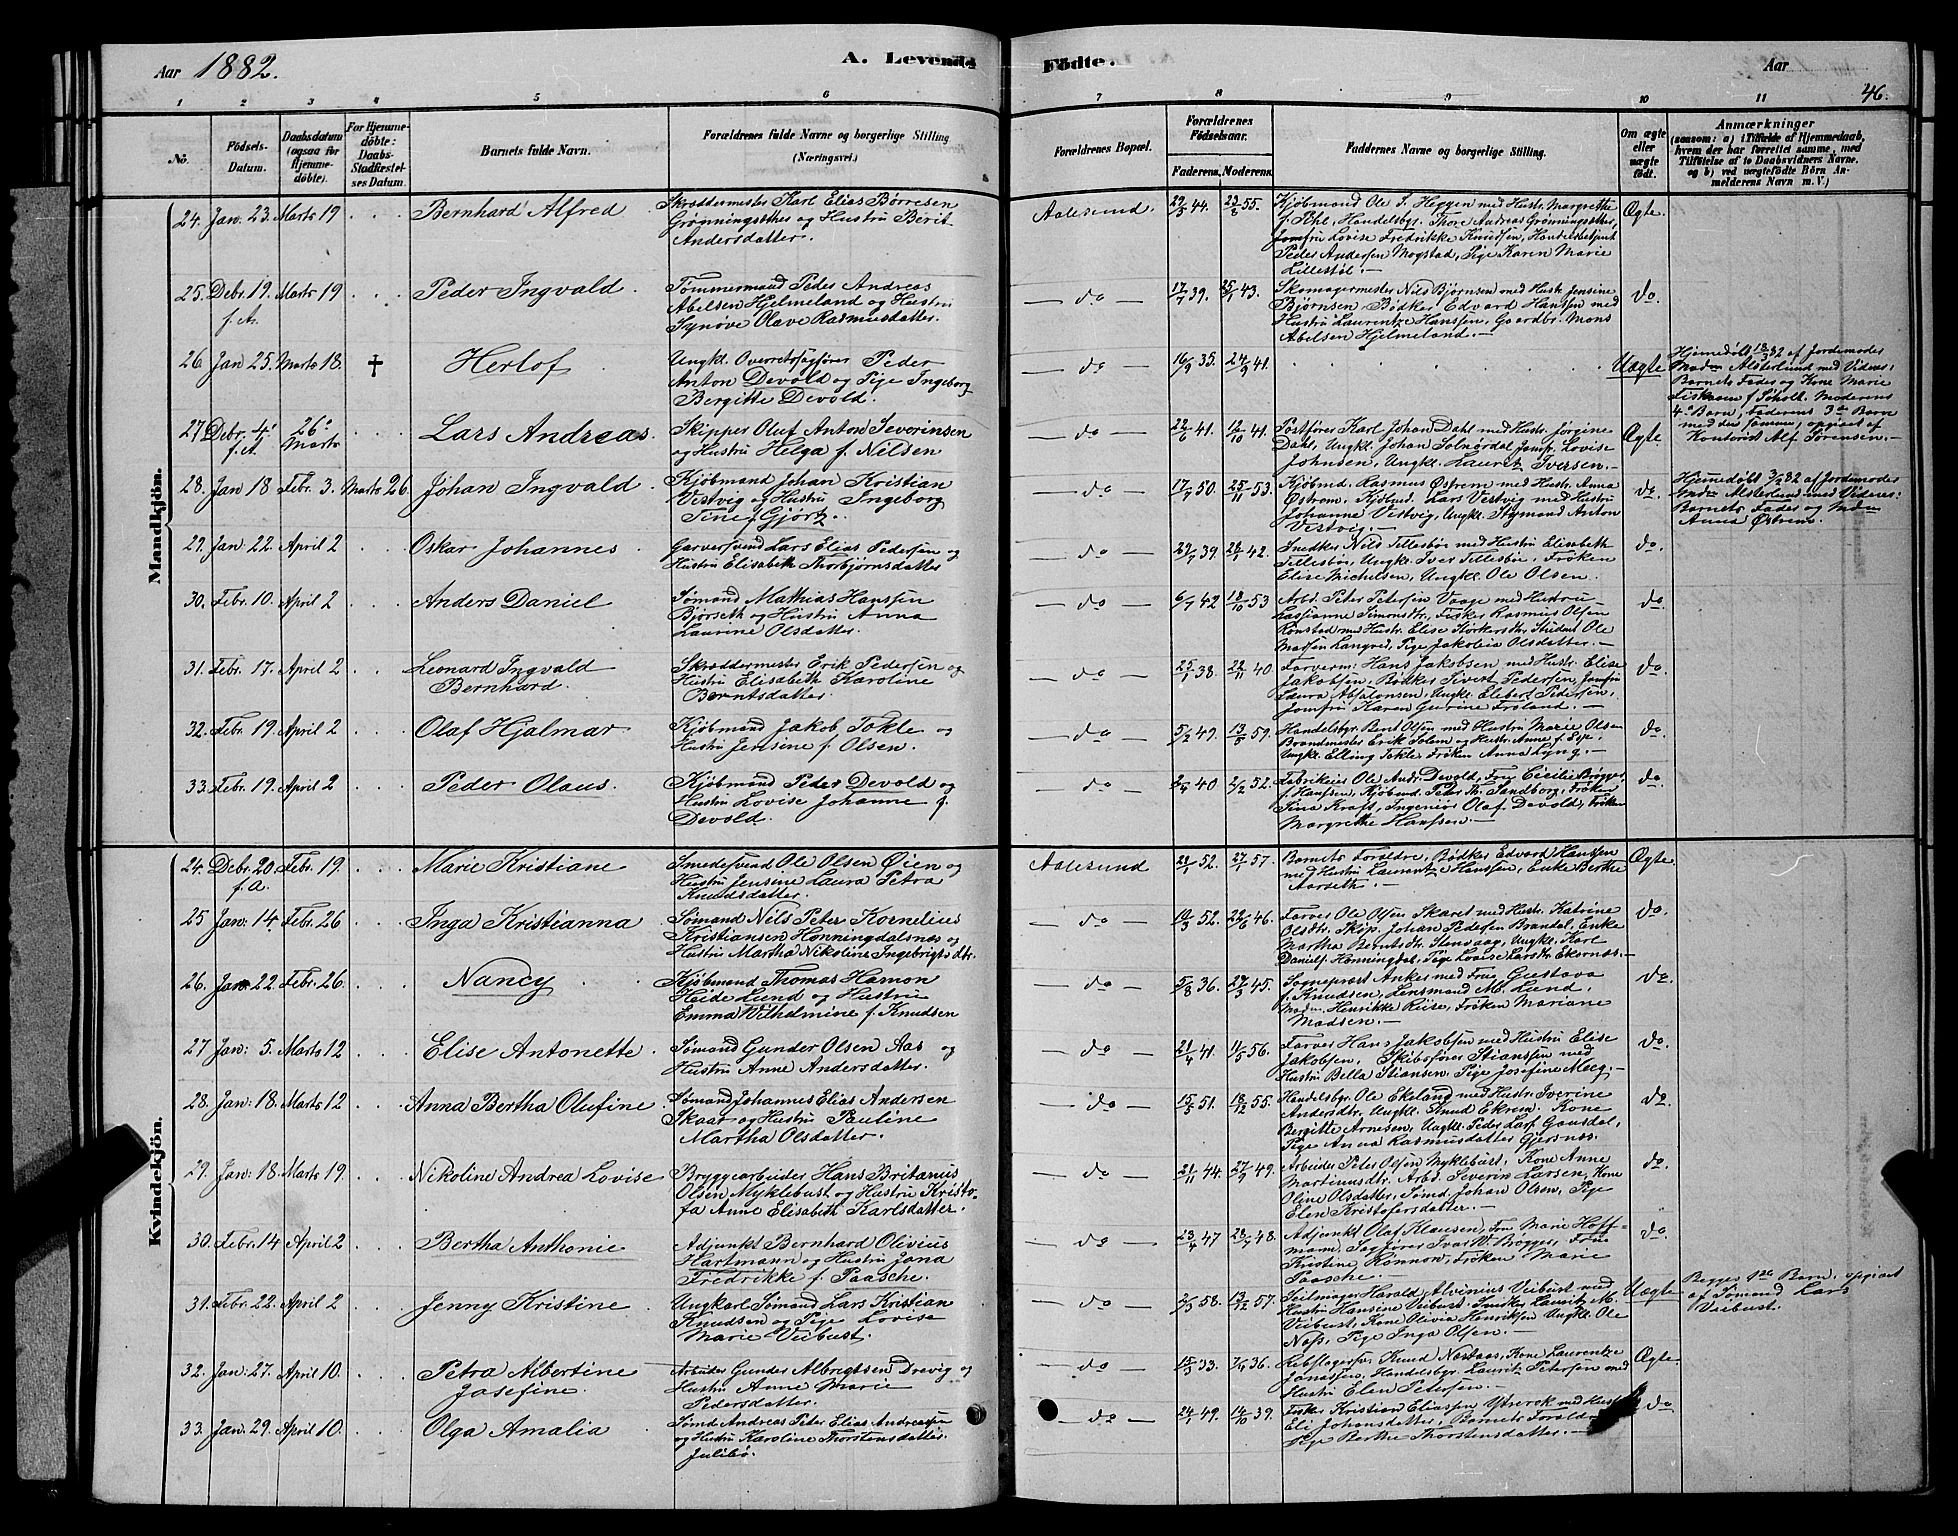 Aar 1882.
A. Levende Fødte.
Aar
46.
1 2 3 4 5 6 7 8 9 10 11
No.
Fødsels-Datum.
Daabsdatum (ogsaa for Hjemmedøbte).
For Hjemmedøbte: Daabs-Stadfæstelses Datum.
Barnets fulde Navn.
Forældrenes fulde Navne og borgerlige Stilling
(Næringsvei.)
Forældrenes Bopæl.
Forældrenes Fødselsaar.
Faderens. Moderens.
Faddernes Navne og borgerlige Stilling.
Om ægte eller uægte født.
Anmærkninger
(saasom: a) i Tilfælde af Hjemmedaab, hvem der har forrettet samme, med Tilføielse af to Daabsvidners Navne, og b) ved uægtefødte Børn Anmelderens Navn m. V.)
Mandkjön.
24. Jan. 23. Marts 19 Bernhard Alfred
Skræddermester Karl Elias Børresen
Grønningsæther og Hustru Berit
Andersdatter.
Aalesund. 29/5 44. 23/8 55.
Kjøbmand Ole S. Heggen med Hustr. Margrethe
f. Bhl, Handelsbgr. Thore Andreas Grønningsæther,
Jomfru Lovise Fredrikke Knudsen, Handelsbetjent
Peder Andersen Mogstad, Pige Karen Marie
Lillestøl.—
Ægte.
25. Debr. 19. Marts 19 Peder Ingvald.
f. A.
Tømmermand Peder Andreas
Abelsen Hjelmeland og Hustru
Synøve Olave Rasmusdatter.
— do — 17/7 39. 25/1 43.
Skomagermester Nils Bjørnsen med Hustr. Jensine
Bjørnsen Bødker Edvard Hansen med
Hustru Laurentze Hanssen, Gaardbr. Mons
Abelsen Hjelmeland.—
do.
26 Jan 25. Marts 18. † Herlof
Ungkl. Overretssagfører Peder
Anton Devold og Pige Ingeborg
Bergitte Devold.
— do — 16/9 35. 24/9 41.
Uægte
Hjemedøbt 18/3 82 af Jordemoder
Madm Alsterlund med Vidner:
Barnets Fader og Kone Marie
Fiskaaen f. Søholt. Moderens
4de Barn, Faderens 3die Barn
med den samme, opgivet af
Kontorist Alf Sørensen.—
27 Debr. 4. 26de Marts Lars Andreas.
f. A.
Skipper Oluf Anton Severinsen
og Hustru Helga f. Nilsen
— do — 22/6 41. 12/10 41.
Postfører Karl Johan Dahl med Hustr. Jørgine
Dahl, Ungkl. Johan Solnørdal, Jomfr. Lovise
Johnsen, Ungkl. Lauritz Iversen.—
Ægte
28. Jan 18 Febr. 3. Marts 26. Johan Ingvald
Kjøbmand Johan Kristian
Vestvig og Hustru Ingeborg
Tine f. Gjørtz.
— do — 17/7 50. 25/11 53.
Kjøbmd. Rasmus Østrem med Hustr. Anna
Østrem, Kjøbmd. Lars Vestvig med Hustru
Johanne Vestvig, Ungkl. Sigmand Anton
Vestvig.—
do.
Hjemedøbt 3/2 82 af Jordemoder
Madm Alsterlund med Vidner:
Barnets Fader og Mdm
Anna Østrem.
29. Jan 22. April 2 Oskar Johannes
Garversvend Lars Elias Pedersen og
Hustru Elisabeth Thorbjørnsdatter
— do — 29/7 39 28/1 42.
Snedker Nils Tellesbø med Hustru Elisabeth
Tellesbø, Ungkl. Iver Tellesbø Frøken
Elise Michelsen, Ungkl. Ole Olsen.
do.
30. Febr. 10. April 2 Anders Daniel
Sømand Mathias Hanssen
Bjørseth og Hustru Anna
Laurine Olsdatter.
— do — 6/7 42 18/10 53
Arbd. Peter Petersen Vaage med Hustru
Simonsdtr. Fisker Rasmus Olsen
Rønstad med Hustr. Elise Student Ole
Madsen Langved, Pige Jakobia Olsdatter.—
do
31. Febr. 17. April 2 Leonard Ingvald
Bernhard.
Skræddermester Erik Pedersen og
Hustru Elisabeth Karoline
Berntsdatter.
— do — 25/1 38. 22/11 40
Farverm: Hans Jakobsen med Hustr. Elise
Jakobsen, Bødker Sivert Pedersen, Jomfru
Laura Absalonsen, Ungkl. Elebert Pedersen,
Jomfru Karen Gurine Frøland.—
do.
32. Febr. 19. April 2 Olaf Hjalmar
Kjøbmand Jakob Tokle og
Hustru Jensine f. Olsen.
— do — 5/2 49. 13/5 59.
Handelsbgr. Bent Olsen med Hustru Marie Olsen
Brandmester Erik Solem og Hustr. Anne f. Eye,
Ungkl. Elling Tokle, Frøken Anna Lyng.—
do.
33. Febr. 19. April 2 Peder Olaus.
Kjøbmand Peder Devold og
Hustru Lovise Johanne f.
Devold.
— do — 2/4 40 2/2 52.
Fabrikeier Ole Andr. Devold, Frue Cecilie Brøgger
f. Hanssen, Kjøbmd. Peter Th. Sandborg, Frøken
Tina Kraft, Ingeniør Olaf Devold, Frøken
Margrethe Hanssen.—
do.
Kvindekjön.
24. Debr. 20. Febr. 19. Marie Kristiane
f. A.
Smedesvend Ole Olsen Øien og
Hustru Jensine Laura Petra
Knudsdatter.
Aalesund 21/1 52. 27/1 57.
Barnets Forældre, Bødker Edvard Hanssen
med Hustru Laurentze Hanssen, Enke Berthe
Aarseth.—
Ægte.
25 Jan. 14. Febr. 26 Inga Kristianna
Sømand Nils Peter Kornelius
Kristiansen Honningdalsnæs og
Hustru Martha Nikoline Ingebrigtsdtr.
— do — 19/3 52. 22/6 46.
Farver Ole Olsen Skaret med Hustr. Katrine
Olsdtr. Skip. Johan Pedersen Brandal, Enke
Martha Berntsdtr. Stenvaag, Ungkl. Karl
Daniels. Honningdal, Pige Lovise Larsdtr. Ekornæs.—
do.
26. Jan 22 Febr. 26. Nancy
Kjøbmand Thomas Hamon
Heide Lund og Hustru
Emma Vilhelmine f. Knudsen
— do — 5/8 36. 27/3 45.
Sogneprest Anker med Frue Gustava
f. Knudsen, Lensmand M. Lund,
Madm. Henrikke Riise, Frøken Mariane
Madsen.—
do.
27 Jan: 5. Marts 12 Elise Antonette.
Sømand Gunder Olsen Aas og
Hustru Anne Andersdatter.
— do — 21/4 41. 11/5 56.
Farver Hans Jakobsen med Hustru Elise
Jakobsen, Skibsfører Stianssen med
Hustru Bella Stiansen, Pige Josefine Moeg.—
do.
28. Jan: 18. Marts 12 Anna Bertha Olufine
Sømand Johannes Elias Andersen
Skaar og Hustru Pauline
Martha Olsdatter.
— do — 15/5 51. 18/12 55.
Handelsbgr. Ole Ekeland med Hustr. Iverine
Andersdtr. Ungkl. Knud Ekrem, Kone
Bergitte Arnesen, Ungkl. Peder Lars. Gausdal,
Pige Anna Rasmusdatter Gjersnæs.
do.
29. Jan: 18. Marts 19. Nikoline Andrea Lovise
Bryggearbeider Hans Britanus
Olsen Myklebust og Hustru Kristo-
fa Anne Elisabeth Karlsdatter.
— do — 21/11 44. 27/9 49.
Arbeider Peter Olsen Myklebust, Kone Anne
Martinusdtr. Arbd. Severin Larsen, Kone
Oline Olsdatter, Sømd. Johan Olsen, Pige
Elen Kristofersdatter.
do.
30. Febr. 14 April 2 Bertha Anthonie
Adjunkt Bernhard Olivius
Hartmann og Hustru Jona
Fredrikke f. Paasche.
— do — 23/4 47 28/7 48.
Adjunkt Olaf Hansen, Fru Marie Hoff-
mann, Sagfører Ivar W. Brøgger, Frue
Kristine Rønnon, Frøken Marie
Paasche.—
do.
31. Febr. 22. April 2 Jenny Kristine
Ungkarl Sømand Lars Kristian
Knudsen og Pige Lovise
Marie Veibust.
— do — 2/3 58. 13/12 57.
Seilmager Harald Alvinius Veibust med
Hustru Hansine Veibust, Snedker Lauritz M.
Veibust, Kone Olivia Henriksen Ungkl. Ole
Næss, Pige Inga Olsen.—
Uægte
Begges 1ste Barn, opgivet
af Sømand Lars
Veibust.
32. Jan: 27. April 10. Petra Albertine
Josefine.
Arbeider Gunder Albrigtsen Drevig og
Hustru Anne Marie
Pedersdatter.
— do — 15/3 33. 7/4 36.
Rebslagersv. Knud Nastaas, Kone Laurentze
Jonassen, Handelsbgr. Lauritz Petersen med
Hustru Elen Petersen.—
Ægte.
33. Jan. 29. April 10. Olga Amalia
Sømd Andreas Peter Elias Andreassen
og Hustru Karoline Thorstensdatter
Julibø.
— do — 24/7 49. 14/10 39.
Fisker Kristian Eliassen Ytrerok med Hustr.
Eli Johansdatter, Barnets Forældre,
Pige Berthe Thorstensdatter.—
do